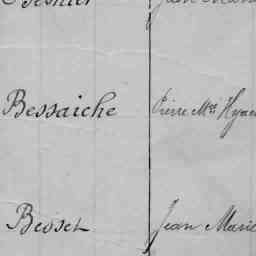 Bessaiche Pierre Mie Hyac
Besset Jean Marie